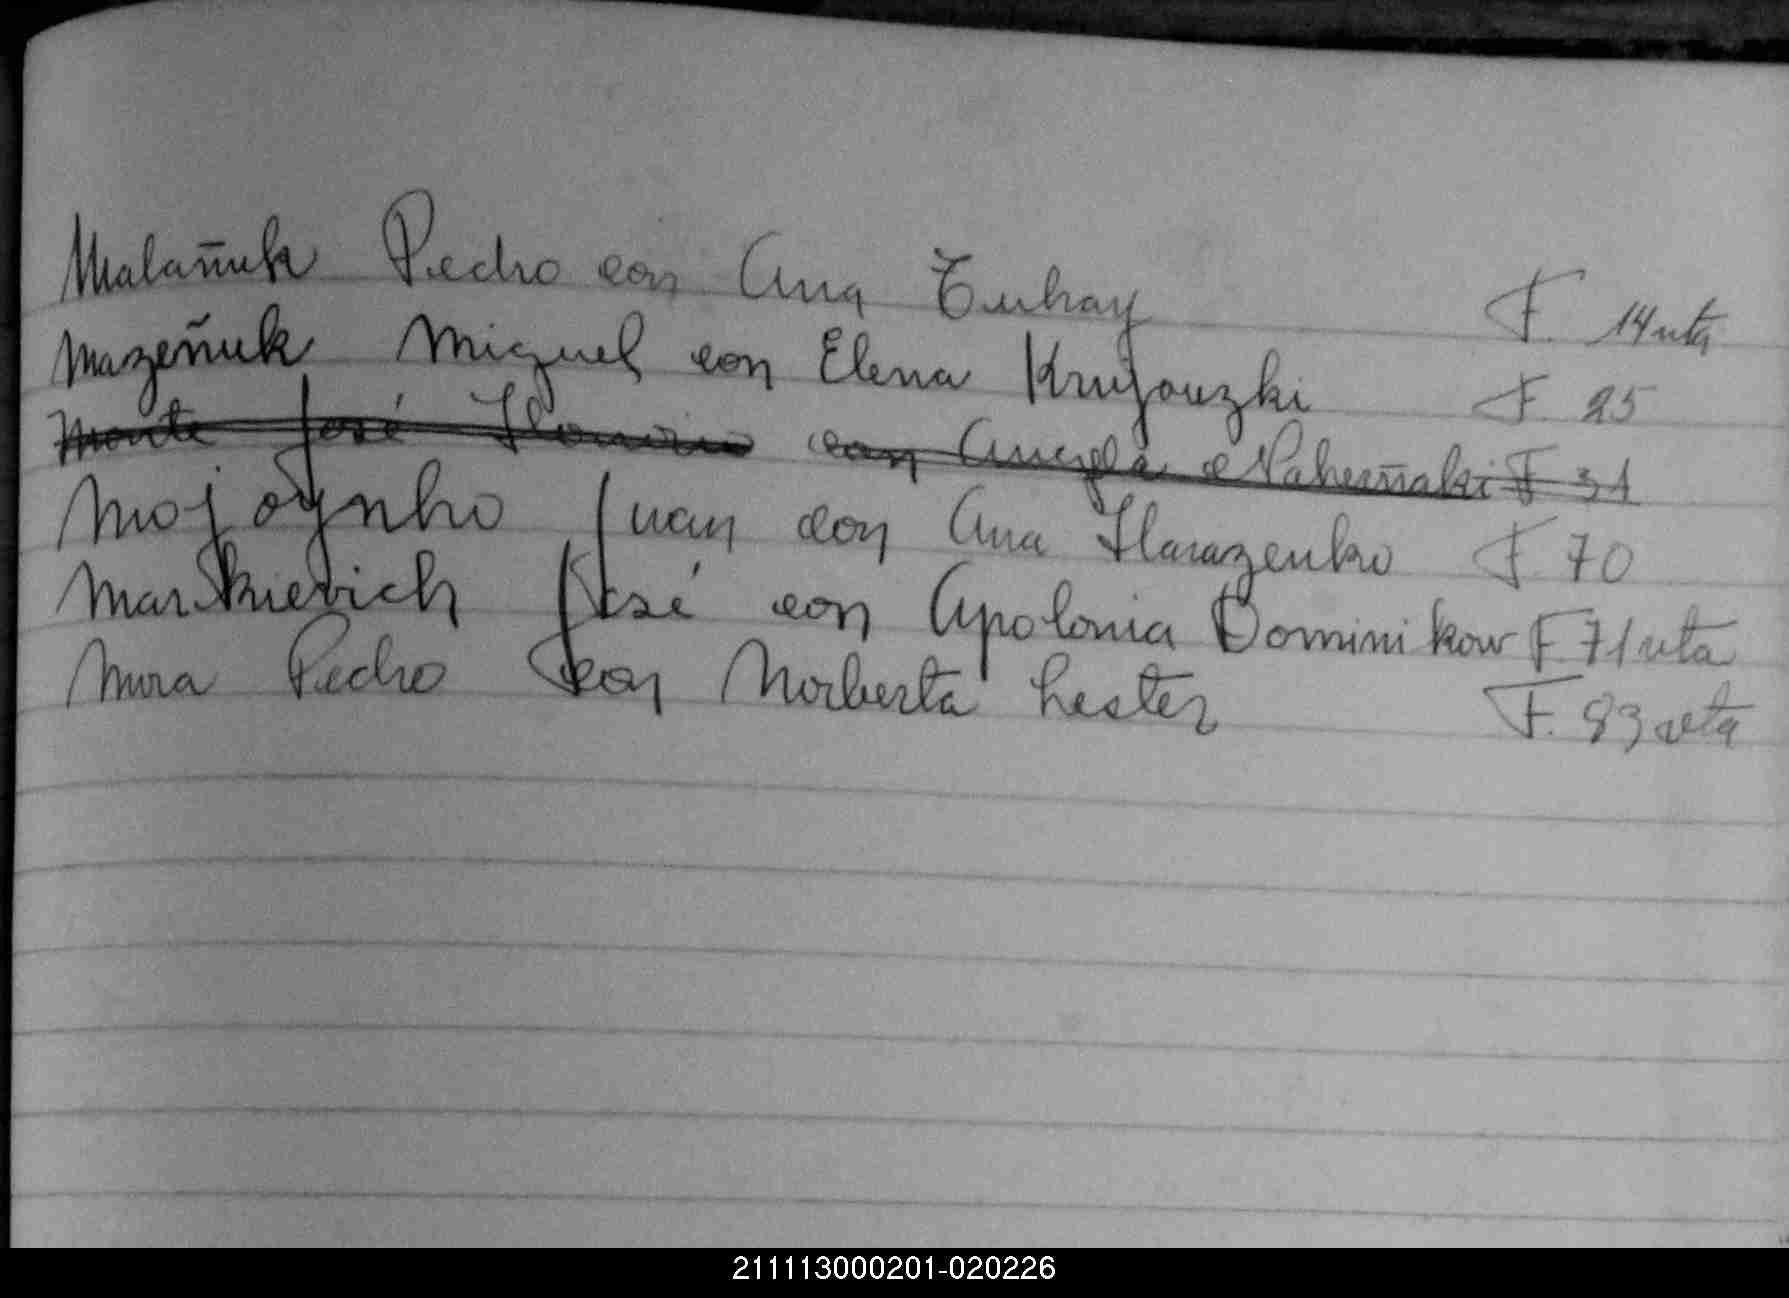 Malañuk Pedro con Ana Tuhay F. 14 uta
Mazeñuk Miguel con Elena Krujouzki F. 25
Monte José con Angela F 31
Mojoynho Juan con Ana Harazenko F. 70
Markievich José con Apolonia Dominikow F. 71 uta
Mura Pedro con Norberta Lester F. 83 uta
211113000201-020226